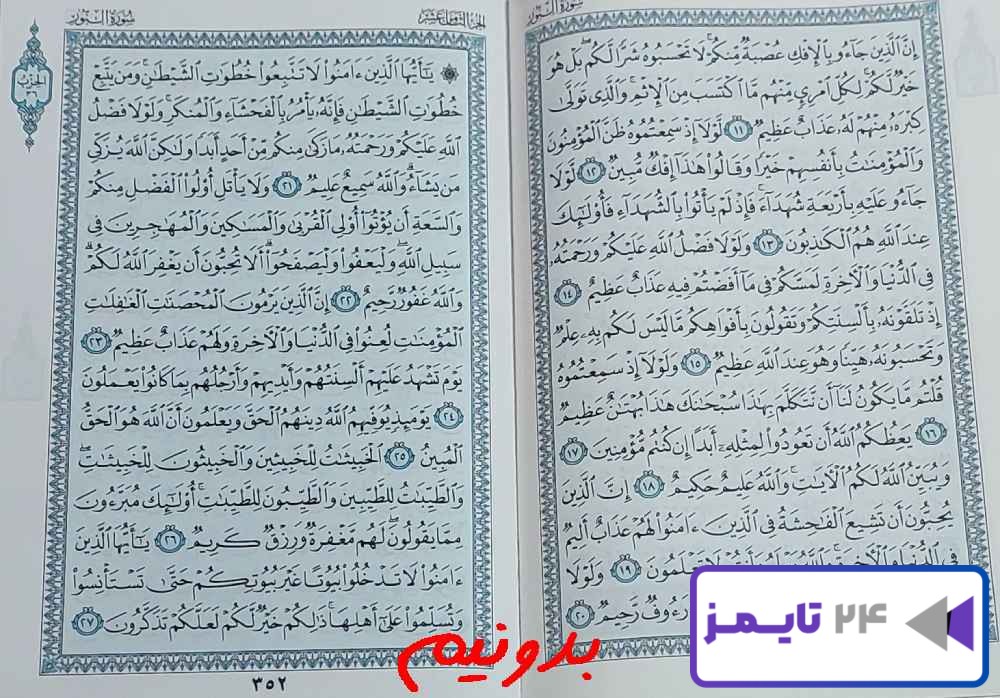 سُورَةُ النُّورِ
إِنَّ الَّذِينَ جَاءُو بِالْإِفْكِ عُصْبَةٌ مِّنكُمْ لَا تَحْسَبُوهُ شَرًّا لَّكُم بَلْ هُوَ
خَيْرٌ لَّكُمْ لِكُلِّ امْرِئٍ مِّنْهُم مَّا اكْتَسَبَ مِنَ الْإِثْمِ وَالَّذِي تَوَلَّىٰ
كِبْرَهُ مِنْهُمْ لَهُ عَذَابٌ عَظِيمٌ ١١ لَّوْلَا إِذْ سَمِعْتُمُوهُ ظَنَّ الْمُؤْمِنُونَ
وَالْمُؤْمِنَاتُ بِأَنفُسِهِمْ خَيْرًا وَقَالُوا هَٰذَا إِفْكٌ مُّبِينٌ ١٢ لَّوْلَا
جَاءُو عَلَيْهِ بِأَرْبَعَةِ شُهَدَاءَ فَإِذْ لَمْ يَأْتُوا بِالشُّهَدَاءِ فَأُولَٰئِكَ
عِندَ اللَّهِ هُمُ الْكَاذِبُونَ ١٣ وَلَوْلَا فَضْلُ اللَّهِ عَلَيْكُمْ وَرَحْمَتُهُ
فِي الدُّنْيَا وَالْآخِرَةِ لَمَسَّكُمْ فِي مَا أَفَضْتُمْ فِيهِ عَذَابٌ عَظِيمٌ ١٤
إِذْ تَلَقَّوْنَهُ بِأَلْسِنَتِكُمْ وَتَقُولُونَ بِأَفْوَاهِكُم مَّا لَيْسَ لَكُم بِهِ عِلْمٌ
وَتَحْسَبُونَهُ هَيِّنًا وَهُوَ عِندَ اللَّهِ عَظِيمٌ ١٥ وَلَوْلَا إِذْ سَمِعْتُمُوهُ
قُلْتُم مَّا يَكُونُ لَنَا أَن نَّتَكَلَّمَ بِهَٰذَا سُبْحَانَكَ هَٰذَا بُهْتَانٌ عَظِيمٌ
١٦ يَعِظُكُمُ اللَّهُ أَن تَعُودُوا لِمِثْلِهِ أَبَدًا إِن كُنتُم مُّؤْمِنِينَ ١٧
وَيُبَيِّنُ اللَّهُ لَكُمُ الْآيَاتِ وَاللَّهُ عَلِيمٌ حَكِيمٌ ١٨ إِنَّ الَّذِينَ
يُحِبُّونَ أَن تَشِيعَ الْفَاحِشَةُ فِي الَّذِينَ ءَامَنُوا لَهُمْ عَذَابٌ أَلِيمٌ
فِي الدُّنْيَا وَالْآخِرَةِ وَاللَّهُ يَعْلَمُ وَأَنتُمْ لَا تَعْلَمُونَ ١٩ وَلَوْلَا
رَءُوفٌ رَّحِيمٌ ٢٠
الجزء الثامن عشر سُورَةُ النُّورِ
الحزب
يَا أَيُّهَا الَّذِينَ ءَامَنُوا لَا تَتَّبِعُوا خُطُوَاتِ الشَّيْطَانِ وَمَن يَتَّبِعْ
خُطُوَاتِ الشَّيْطَانِ فَإِنَّهُ يَأْمُرُ بِالْفَحْشَاءِ وَالْمُنكَرِ وَلَوْلَا فَضْلُ
اللَّهِ عَلَيْكُمْ وَرَحْمَتُهُ مَا زَكَىٰ مِنكُم مِّنْ أَحَدٍ أَبَدًا وَلَٰكِنَّ اللَّهَ يُزَكِّي
مَن يَشَاءُ وَاللَّهُ سَمِيعٌ عَلِيمٌ ٢١ وَلَا يَأْتَلِ أُولُوا الْفَضْلِ مِنكُمْ
وَالسَّعَةِ أَن يُؤْتُوا أُولِي الْقُرْبَىٰ وَالْمَسَاكِينَ وَالْمُهَاجِرِينَ فِي
سَبِيلِ اللَّهِ وَلْيَعْفُوا وَلْيَصْفَحُوا أَلَا تُحِبُّونَ أَن يَغْفِرَ اللَّهُ لَكُمْ
وَاللَّهُ غَفُورٌ رَّحِيمٌ ٢٢ إِنَّ الَّذِينَ يَرْمُونَ الْمُحْصَنَاتِ الْغَافِلَاتِ
الْمُؤْمِنَاتِ لُعِنُوا فِي الدُّنْيَا وَالْآخِرَةِ وَلَهُمْ عَذَابٌ عَظِيمٌ ٢٣
يَوْمَ تَشْهَدُ عَلَيْهِمْ أَلْسِنَتُهُمْ وَأَيْدِيهِمْ وَأَرْجُلُهُم بِمَا كَانُوا يَعْمَلُونَ
٢٤ يَوْمَئِذٍ يُوَفِّيهِمُ اللَّهُ دِينَهُمُ الْحَقَّ وَيَعْلَمُونَ أَنَّ اللَّهَ هُوَ الْحَقُّ
الْمُبِينُ ٢٥ الْخَبِيثَاتُ لِلْخَبِيثِينَ وَالْخَبِيثُونَ لِلْخَبِيثَاتِ
وَالطَّيِّبَاتُ لِلطَّيِّبِينَ وَالطَّيِّبُونَ لِلطَّيِّبَاتِ أُولَٰئِكَ مُبَرَّءُونَ
مِمَّا يَقُولُونَ لَهُم مَّغْفِرَةٌ وَرِزْقٌ كَرِيمٌ ٢٦ يَا أَيُّهَا الَّذِينَ
ءَامَنُوا لَا تَدْخُلُوا بُيُوتًا غَيْرَ بُيُوتِكُمْ حَتَّىٰ تَسْتَأْنِسُوا
وَتُسَلِّمُوا عَلَىٰ أَهْلِهَا ذَٰلِكُمْ خَيْرٌ لَّكُمْ لَعَلَّكُمْ تَذَكَّرُونَ ٢٧
٣٥٢
بدونیم
۲۴ تایمز